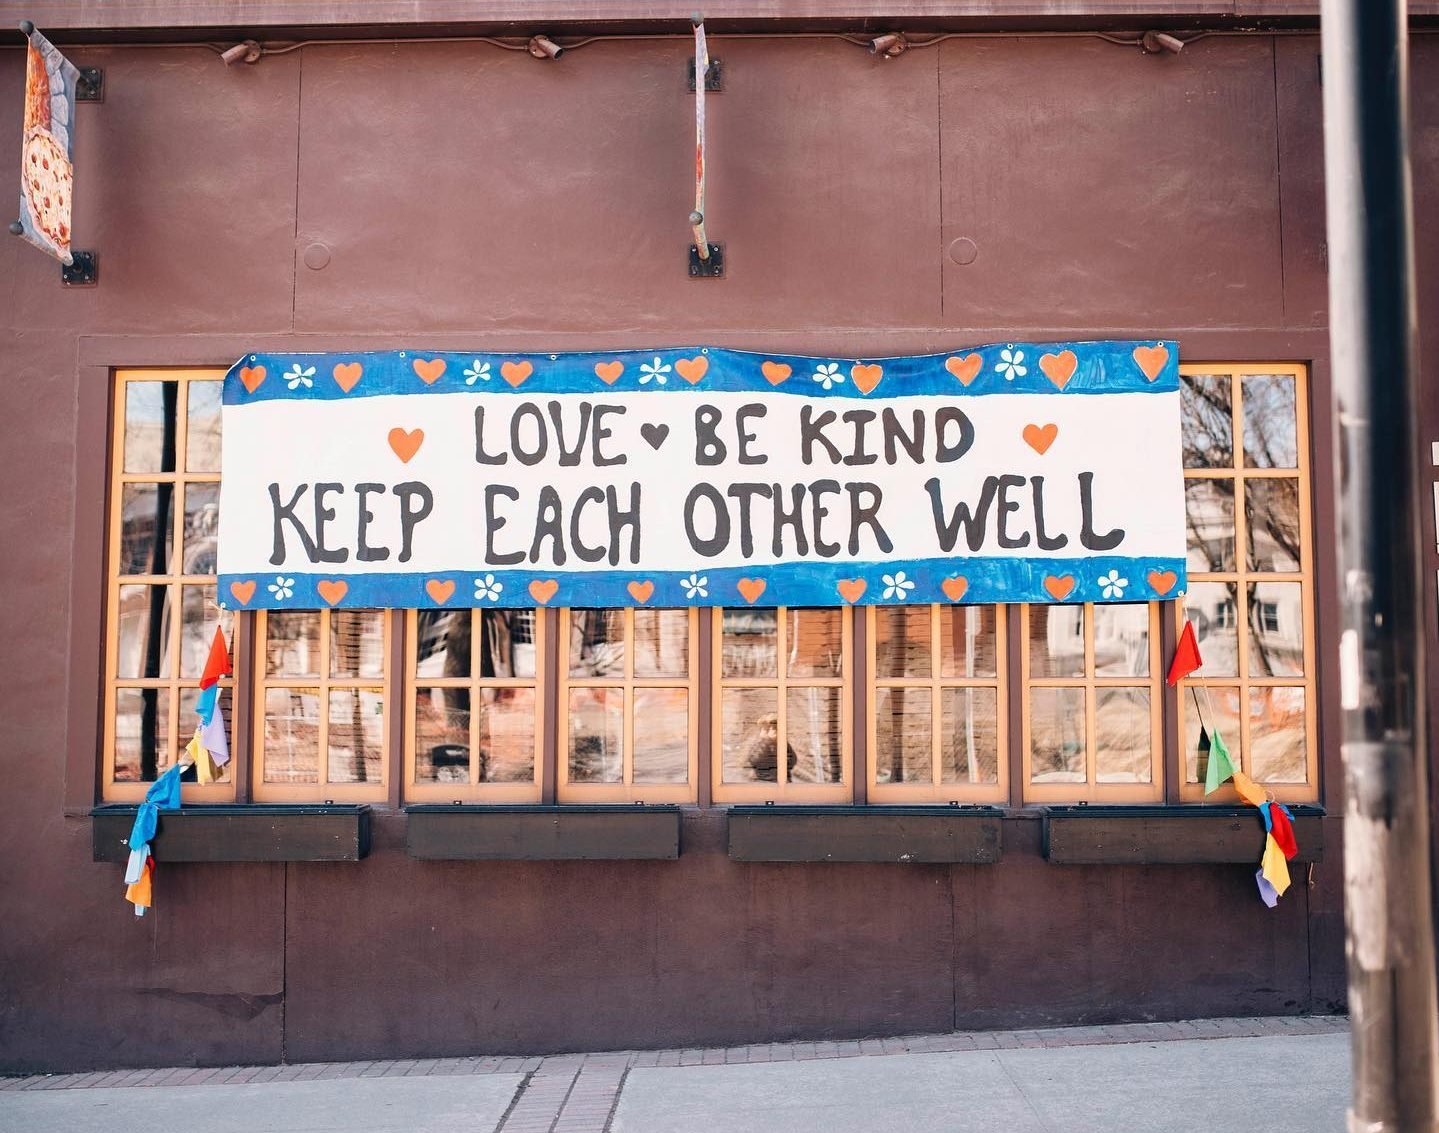 LOVE ♥ BE KIND
KEEP EACH OTHER WELL